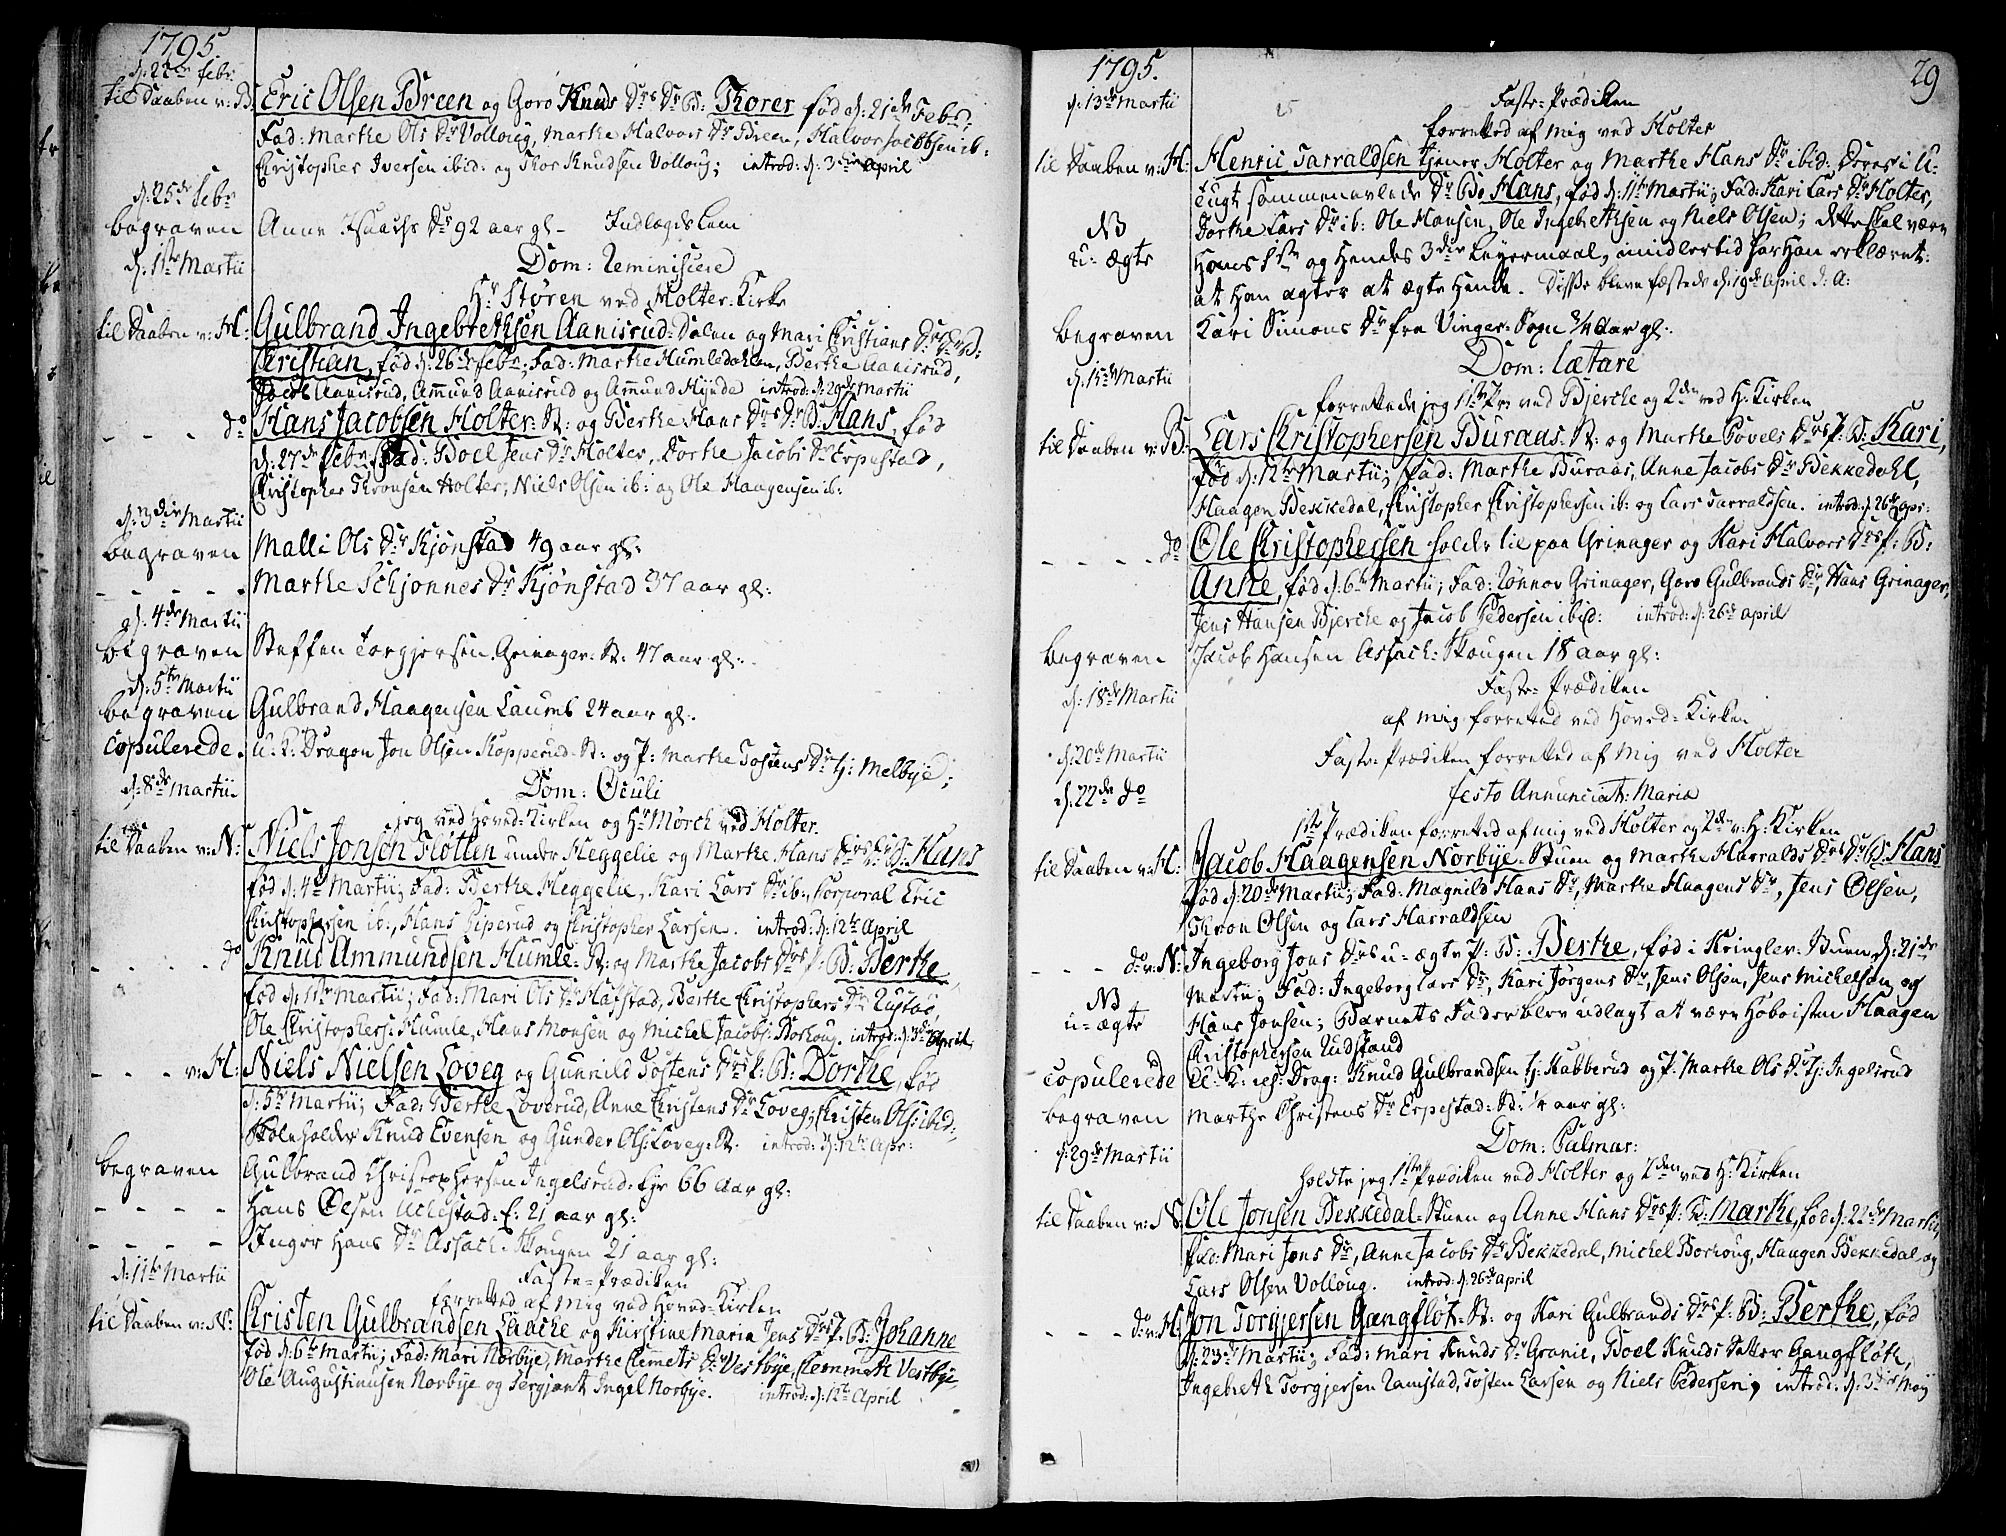 1795.
d: 22de Febr:
til Daaben v: B: Eric Olsen Breen og Goro Knuds Drs Dr B: Thorer fød d: 21de Febr:
Fad: Marthe Ols Dr Volloug, Marthe Halvors Dr Breen, Halvor Jacobsen ib:
Christopher Iversen ibid: og Thor Knudsen Volloug; introd: d: 3die april
d: 25de Febr
begraven Anne Isaachs Dr 92 aar gl. Indlagds Lem
d: 1ste Martii
Dom: Reminiscere
Hr Støren ved Holter-Kirke
til Daaben v: H: Gulbrand Ingebrethsen Aanisrud-Dalen og Mari Christians Drs Dr B:
Christian, fød d: 26de Febr; Fad: Marthe Humledahlen, Berthe Aanisrud,
Jacob Aanisrud, Amund Aanisrud og Amund Hynde introd: d: 29de Martii
- - - do Hans Jacobsen Holter-St: og Berthe Hans Drs Dr B: Hans, fød
d: 27de Febr Fad: Boel Jens Dr Holter, Dorthe Jacobs Dr Erpestad,
Christopher Thronsen Holter, Niels Olsen ib: og Ole Haagensen ib:
d: 3die Martii
begraven Malli Ols Dr Kjønstad 49 aar gl:
- - - - - Marthe Schjonnes Dr Kjønstad 37 aar gl:
d: 4de Martii
begraven Steffen Torgjersen Grinager-St: 47 aar gl:
d: 5te Martii
begraven Gulbrand Haagensen Laumb 24 aar gl:
copulerede. U: K: Dragon Jon Olsen Kopperud-St: og P: Marthe Tostens Dr tj: Melbye;
d: 8de Martii
Dom: Oculi
jeg ved Hoved-Kirken og Hr Mørch ved Holter.
til Daaben v: N: Niels Jonsen Fløtten under Heggelie og Marthe Hans Drs Dr B: Hans
fød d: 4de Martii; Fad: Berthe Heggelie, Kari Lars Dr ib:, Corporal Eric
Christophersen ib:, Hans Giperud og Christopher Larsen. introd: d: 12te April
- - - - do Knud Ammundsen Humle-St: og Marthe Jacobs Drs P: B: Berthe
fød d: 1ste Martii; Fad: Mari Ols Dr Hafstad, Berthe Christophers Dr Rustad,
Ole Christophers: Humle, Hans Monsen og Michel Jacobs: Borhoug. introd: d: 3die April
- - - v: H: Niels Nielsen Loveg og Gunnild Tostens Drs P: B: Dorthe, fød
d: 5te Martii; Fad: Berthe Loverud, Anne Christens Dr Loveg, Christen Ols: ibid:,
Skoleholder Knud Evensen og Gunder Ols: Loveg-St. introd: d: 12te Apr:
begraven Gulbrand Christophersen Ingelsrud-Eje 66 aar gl:
- - - - Hans Olsen Ullestad-E: 21 aar gl:
- - - - Inger Hans Dr Assach-Skougen 21 aar gl:
d: 11te Martii
Faste-Prædiken
forretted af mig ved Hoved-Kirken
til Daaben v: N: Christen Gulbrandsen Laache og Kirstine Maria Jens Drs P: B: Johanne
fød d: 6te Martii; Fad: Mari Norbye, Marthe Clemets Dr Vestbye, Clemmeth Vestbye,
Ole Augustinusen Norbye og Sergjant Ingel Norbye. introd: d: 12te April
1795. 29
d: 13de Martii
Faste-Prædiken
forretted af mig ved Holter
til Daaben v: H: Henric Tarraldsen tjener Holter og Marthe Hans Dr ibid: Deres i U-
tugt sammenavlede Dr B: Hans, fød d: 11te Martii; Fad: Kari Lars Dr Holter,
NB Dorthe Lars Dr ib: Ole Hansen, Ole Ingebrethsen og Niels Olsen; dette skal være
u-ægte Hans 1ste og Hendes 3die Leyermaal, imidlertid har Han erklæret:
at Han agter at ægte Hende. Disse bleve fæstede d: 19de April d: A:
begraven Kari Simons Dr fra Vinger-Sogn 3/4 aar gl:
d: 15de Martii
Dom: Lætare
forrettede jeg 1ste Pr: ved Bjercke og 2den ved H: Kirken
til Daaben v: B: Lars Christophersen Buraas-St: og Marthe Povels Drs P: B: Kari,
fød d: 12te Martii; Fad: Marthe Buraas, Anne Jacobs Dr Bekkedahl,
Haagen Bekkedal, Christopher Christophersen ib: og Lars Tarraldsen. introd: d: 26de Apr:
- - - - do Ole Christophersen holder til paa Grinager og Kari Halvors Drs P: B:
Anne, fød d: 6te Martii; Fad: Rønnov Grinager, Goro Gulbrands Dr, Hans Grinager,
Jens Hansen Bjercke og Jacob Pedersen ibid: introd: d: 26de April
begraven Jacob Hansen Assach-Skougen 18 aar gl:
d: 18de Martii
Faste-Prædiken
af mig forretted ved Hoved-Kirken
d: 20de Martii Faste-Prædiken forretted af mig ved Holter
d: 22de do
Festo Annunciat: Mariæ
1ste Prædiken forretted af mig ved Holter og 2den v: H: Kirken
til Daaben v: H: Jacob Haagensen Norbye-Stuen og Marthe Harralds Drs Dr B: Hans
fød d: 20de Martii; Fad: Magnild Hans Dr, Marthe Haagens Dr, Jens Olsen,
Thron Olsen og Lars Harraldsen
- - - do v: N: Ingeborg Jons Drs u-ægte P: B: Berthe, fød i Kringler-Stuen d: 21de
NB Martii; Fad: Ingeborg Lars Dr, Kari Jørgens Dr, Jens Olsen, Jens Michelsen og
u-ægte Hans Jonsen; Barnets Fader blev udlagt at være Hoboisten Haagen
Christophersen Rudstand
copulerede U: K: Drag: Knud Gulbrandsen tj: Habberud og P: Marthe Ols Dr tj: Ingelsrud
begraven Marthe Christens Dr Erpestad-St: 1/2 aar gl:
d: 29de Martii
Dom: Palmar:
holdte jeg 1ste Prædiken ved Holter og 2den ved H: Kirken
til Daaben v: N: Ole Jonsen Bekkedal-Stuen og Anne Hans Drs P: B: Marthe, fød d: 22de Martii,
Fad: Mari Jons Dr, Anne Jacobs Dr Bekkedal, Michel Borhoug, Haagen Bekkedal og
Lars Olsen Volloug. introd: d: 26de April
- - - do v: H: Jon Torgjersen Gangfløt-St: og Kari Gulbrands Drs P: B: Berthe, fød
d: 23de Martii; Fad: Mari Knuds Dr Granie, Boel Knuds Datter Gangfløth,
Ingebreth Torgjersen Ramstad, Tosten Larsen og Niels Pedersen; introd: d: 3die Maij